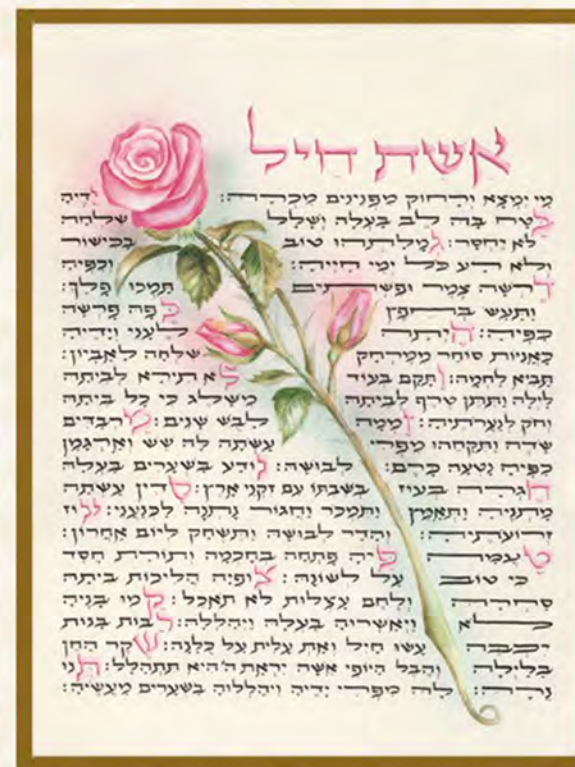 אשת חיל
מי ימצא ורחוק מפנינים מכרה:
בטח בה לב בעלה ושלל
לא יחסר: גמלתהו טוב
ולא רע כל ימי חייה:
דרשה צמר ופשתים
ותעש בחפץ
כפיה: היתה
כאניות סוחר ממרחק
תביא לחמה: ותקם בעוד
לילה ותתן טרף לביתה
וחק לנערתיה: זממה
שדה ותקחהו מפרי
כפיה נטעה כרם:
חגרה בעוז
מתניה ותאמץ
זרועתיה:
טעמה
כי טוב
סחרה
לא
יכבה
בלילה
נרה:
ידיה
שלחה
בכישור
וכפיה
תמכו פלך:
כפה פרשה
לעני וידיה
שלחה לאביון:
לא תירא לביתה
משלג כי כל ביתה
לבש שנים: מרבדים
עשתה לה שש וארגמן
לבושה: נודע בשערים בעלה
בשבתו עם זקני ארץ: סדין עשתה
ותמכר וחגור נתנה לכנעני: עוז
והדר לבושה ותשחק ליום אחרון:
פיה פתחה בחכמה ותורת חסד
על לשונה: צופיה הליכות ביתה
ולחם עצלות לא תאכל: קמו בניה
ויאשרוה בעלה ויהללה: רבות בנות
עשו חיל ואת עלית על כלנה: שקר החן
והבל היופי אשה יראת ה' היא תתהלל: תנו
לה מפרי ידיה ויהללוה בשערים מעשיה: